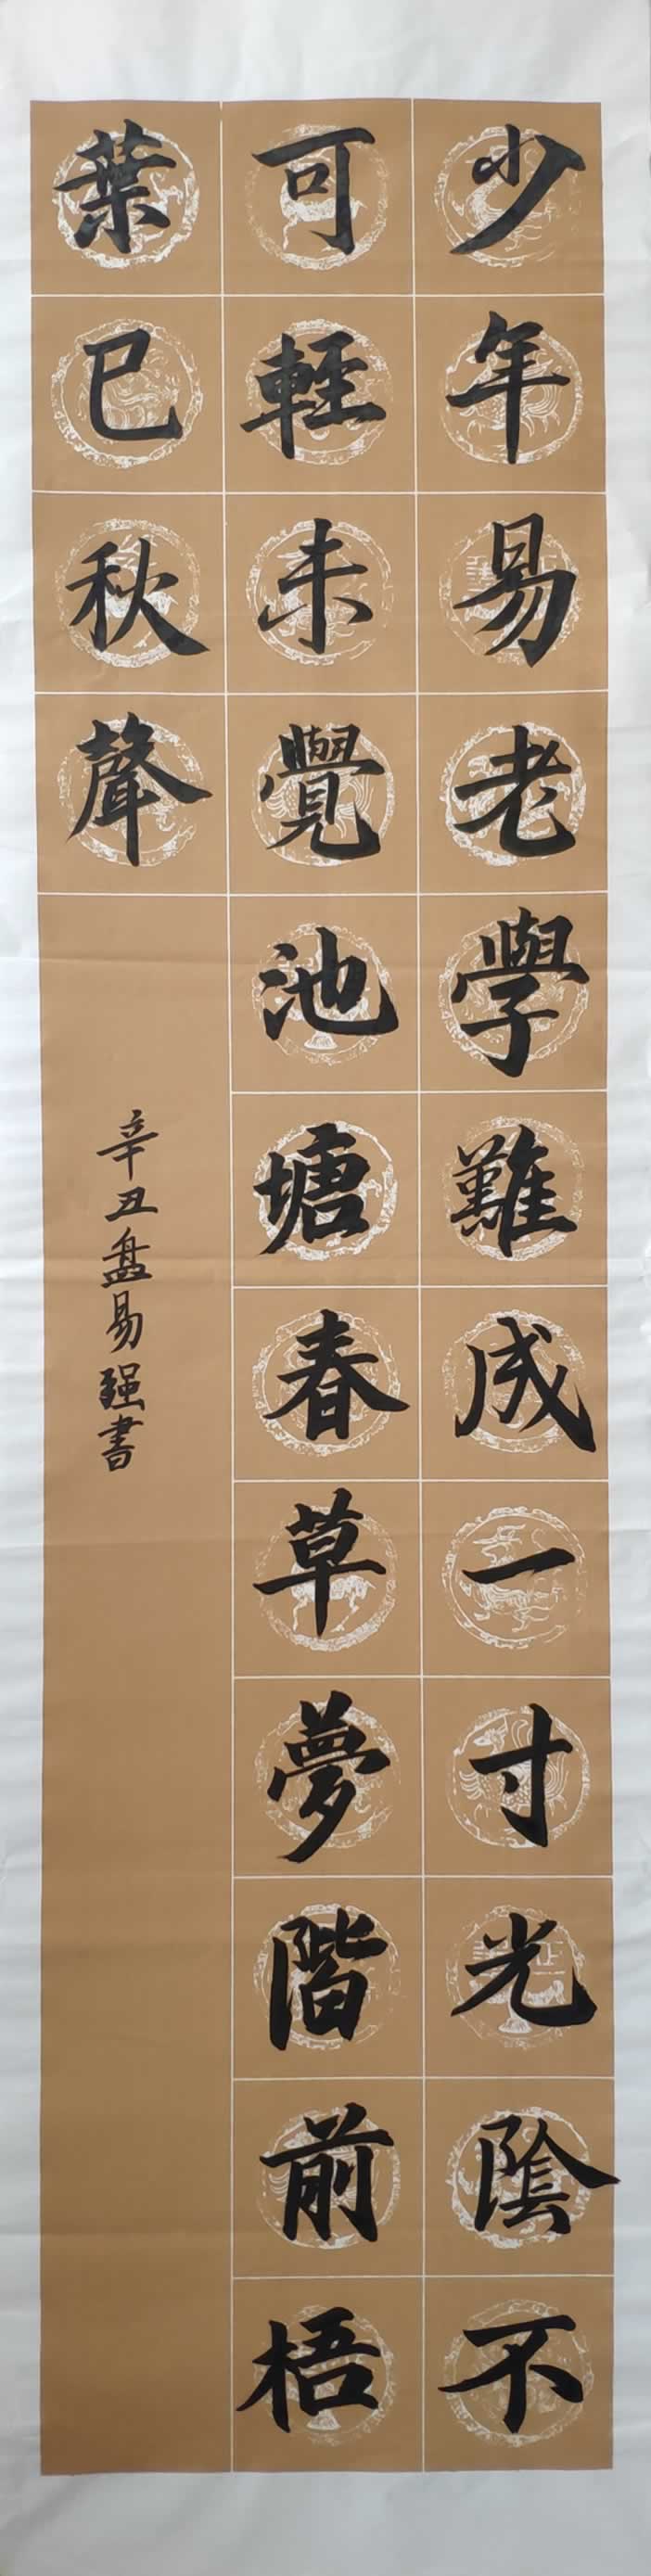 少年易老學難成一寸光陰不
可輕未覺池塘春草夢階前梧
葉已秋聲
辛丑孟易强書